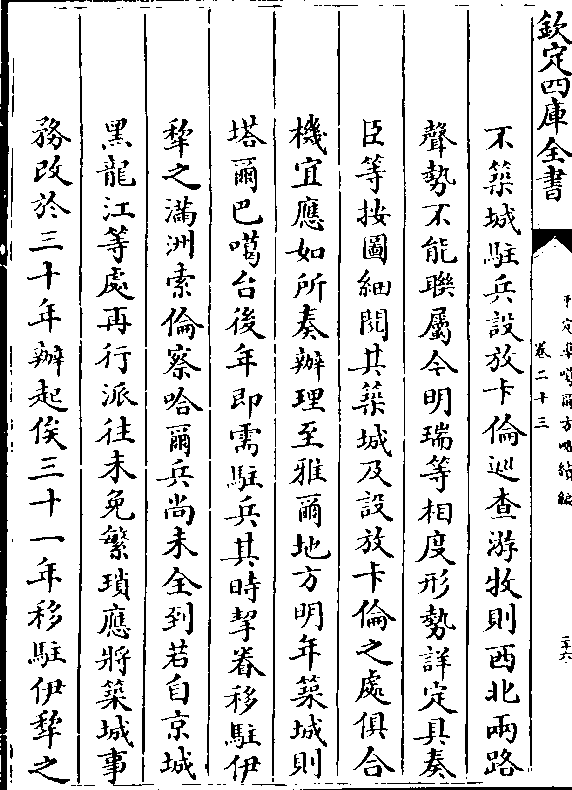 欽定四庫全書
平定凖噶爾方略續編
卷二十三
二十六
不築城駐兵設放卡倫廵查游牧則西北兩路
聲勢不能聯屬今明瑞等相度形勢詳定具奏
臣等按圖細閱其築城及設放卡倫之處俱合
機宜應如所奏辦理至雅爾地方明年築城則
塔爾巴噶台後年即需駐兵其時挈眷移駐伊
犂之滿洲索倫察哈爾兵尚未全到若自京城
黑龍江等處再行派往未免繁瑣應將築城事
務改於三十年辦起俟三十一年移駐伊犂之